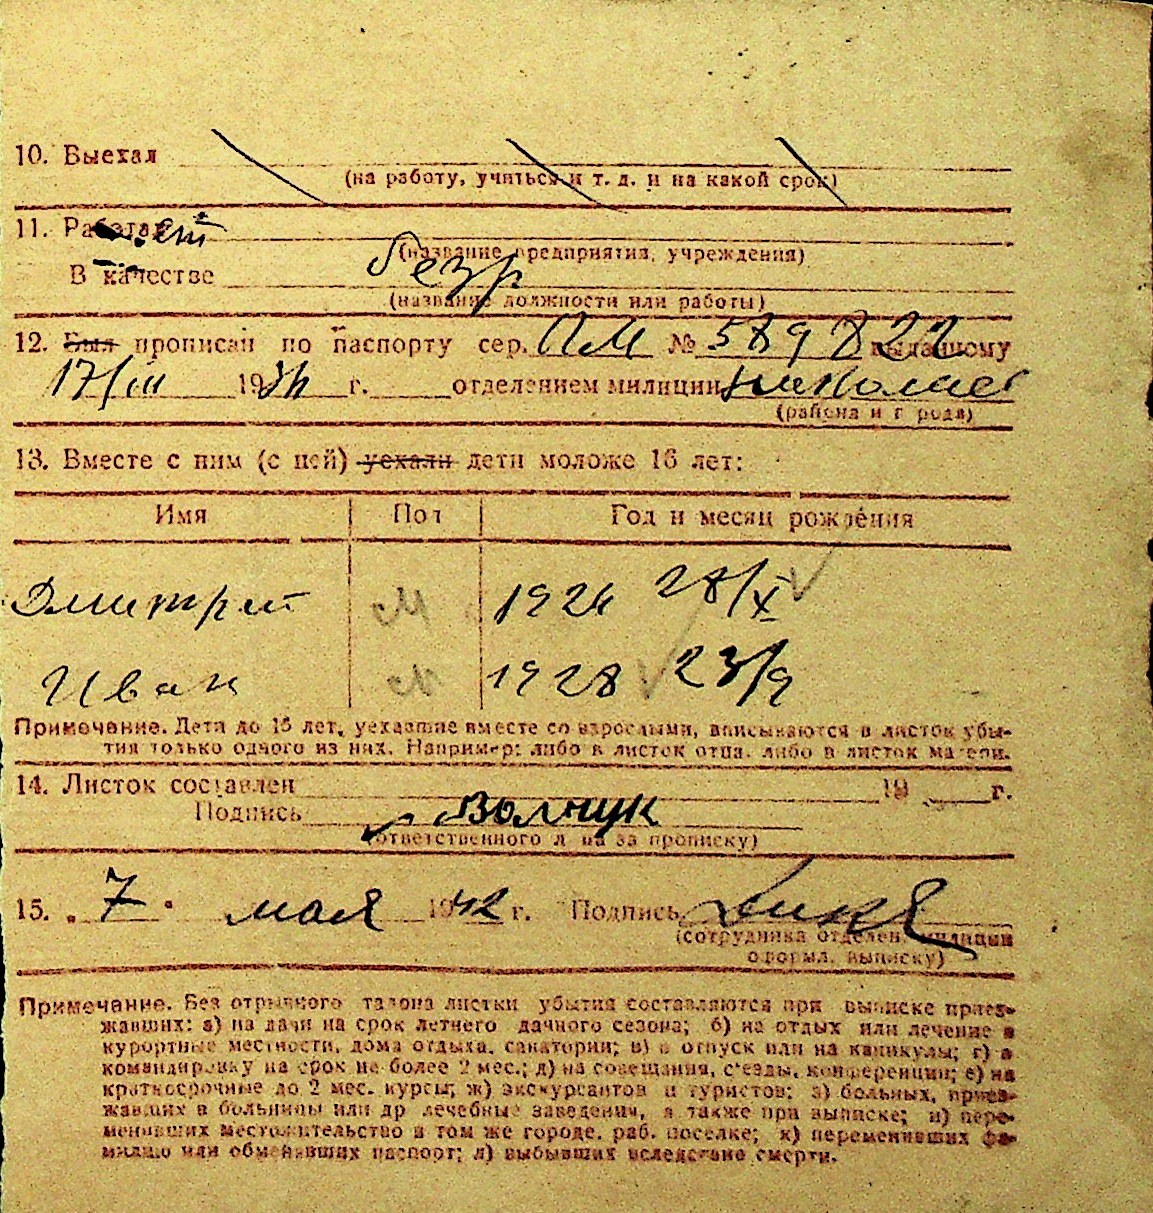 10. Выехал
(на работу, учиться и т. д. и на какой срок)
11. Работает
(название предприятия, учреждения)
В качестве безр
(название должности или работы)
12. Был прописан по паспорту сер. ПМ № 589822 выданному
17/III 1934 г. отделением милиции Николаев
(района и города)
13. Вместе с ним (с ней) уехали дети моложе 16 лет:
Имя Пол Год и месяц рождения
Дмитрий М 1926 28/X
Иван М 1928 23/9
Примечание. Дети до 15 лет, уехавшие вместе со взрослыми, вписываются в листок убы-
тия только одного из них. Например: либо в листок отца, либо в листок матери.
14. Листок составлен 19 г.
Подпись Волчук
(ответственного лица за прописку)
15. „7" мая 1942 г. Подпись
(сотрудника отделен. милиции
оформл. выписку)
Примечание. Без отрывного талона листки убытия составляются при выписке приез-
жавших: а) на дачи на срок летнего дачного сезона; б) на отдых или лечение в
курортные местности, дома отдыха, санатории; в) в отпуск или на каникулы; г) в
командировку на срок не более 2 мес.; д) на совещания, с'езды, конференции; е) на
краткосрочные до 2 мес. курсы; ж) экскурсантов и туристов; з) больных, приез-
жавших в больницы или др лечебные заведения, а также при выписке; и) пере-
менивших местожительство в том же городе, раб. поселке; к) переменивших фа-
милию или обменявших паспорт; л) выбывших вследствие смерти.